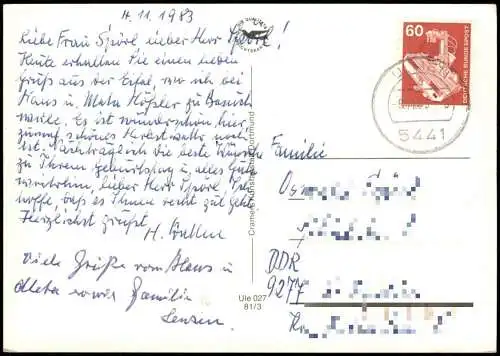 4.11.1983
Liebe Frau Spörl, lieber Herr Spörl!
Heute erhalten Sie einen lieben
Gruß aus der Eifel, wo ich bei
Hans u. Meta Häßler zu Besuch
weile. Es ist wunderschön hier,
zumal schönes Herbstwetter
ist. Nachträglich die beste Wünsche
zu Ihrem Geburtstag u. alles Gute
weiterhin, lieber Herr Spörl. Ich
hoffe, daß es Ihnen recht gut geht.
Herzlichst grüßt
H.
Viele Grüße vom Hans u.
Meta sowie Familie
Cramers Kunstanstalt Dortmund
Üle 027
81/3
60
DEUTSCHE BUNDESPOST
5441
Familie
DDR
9277